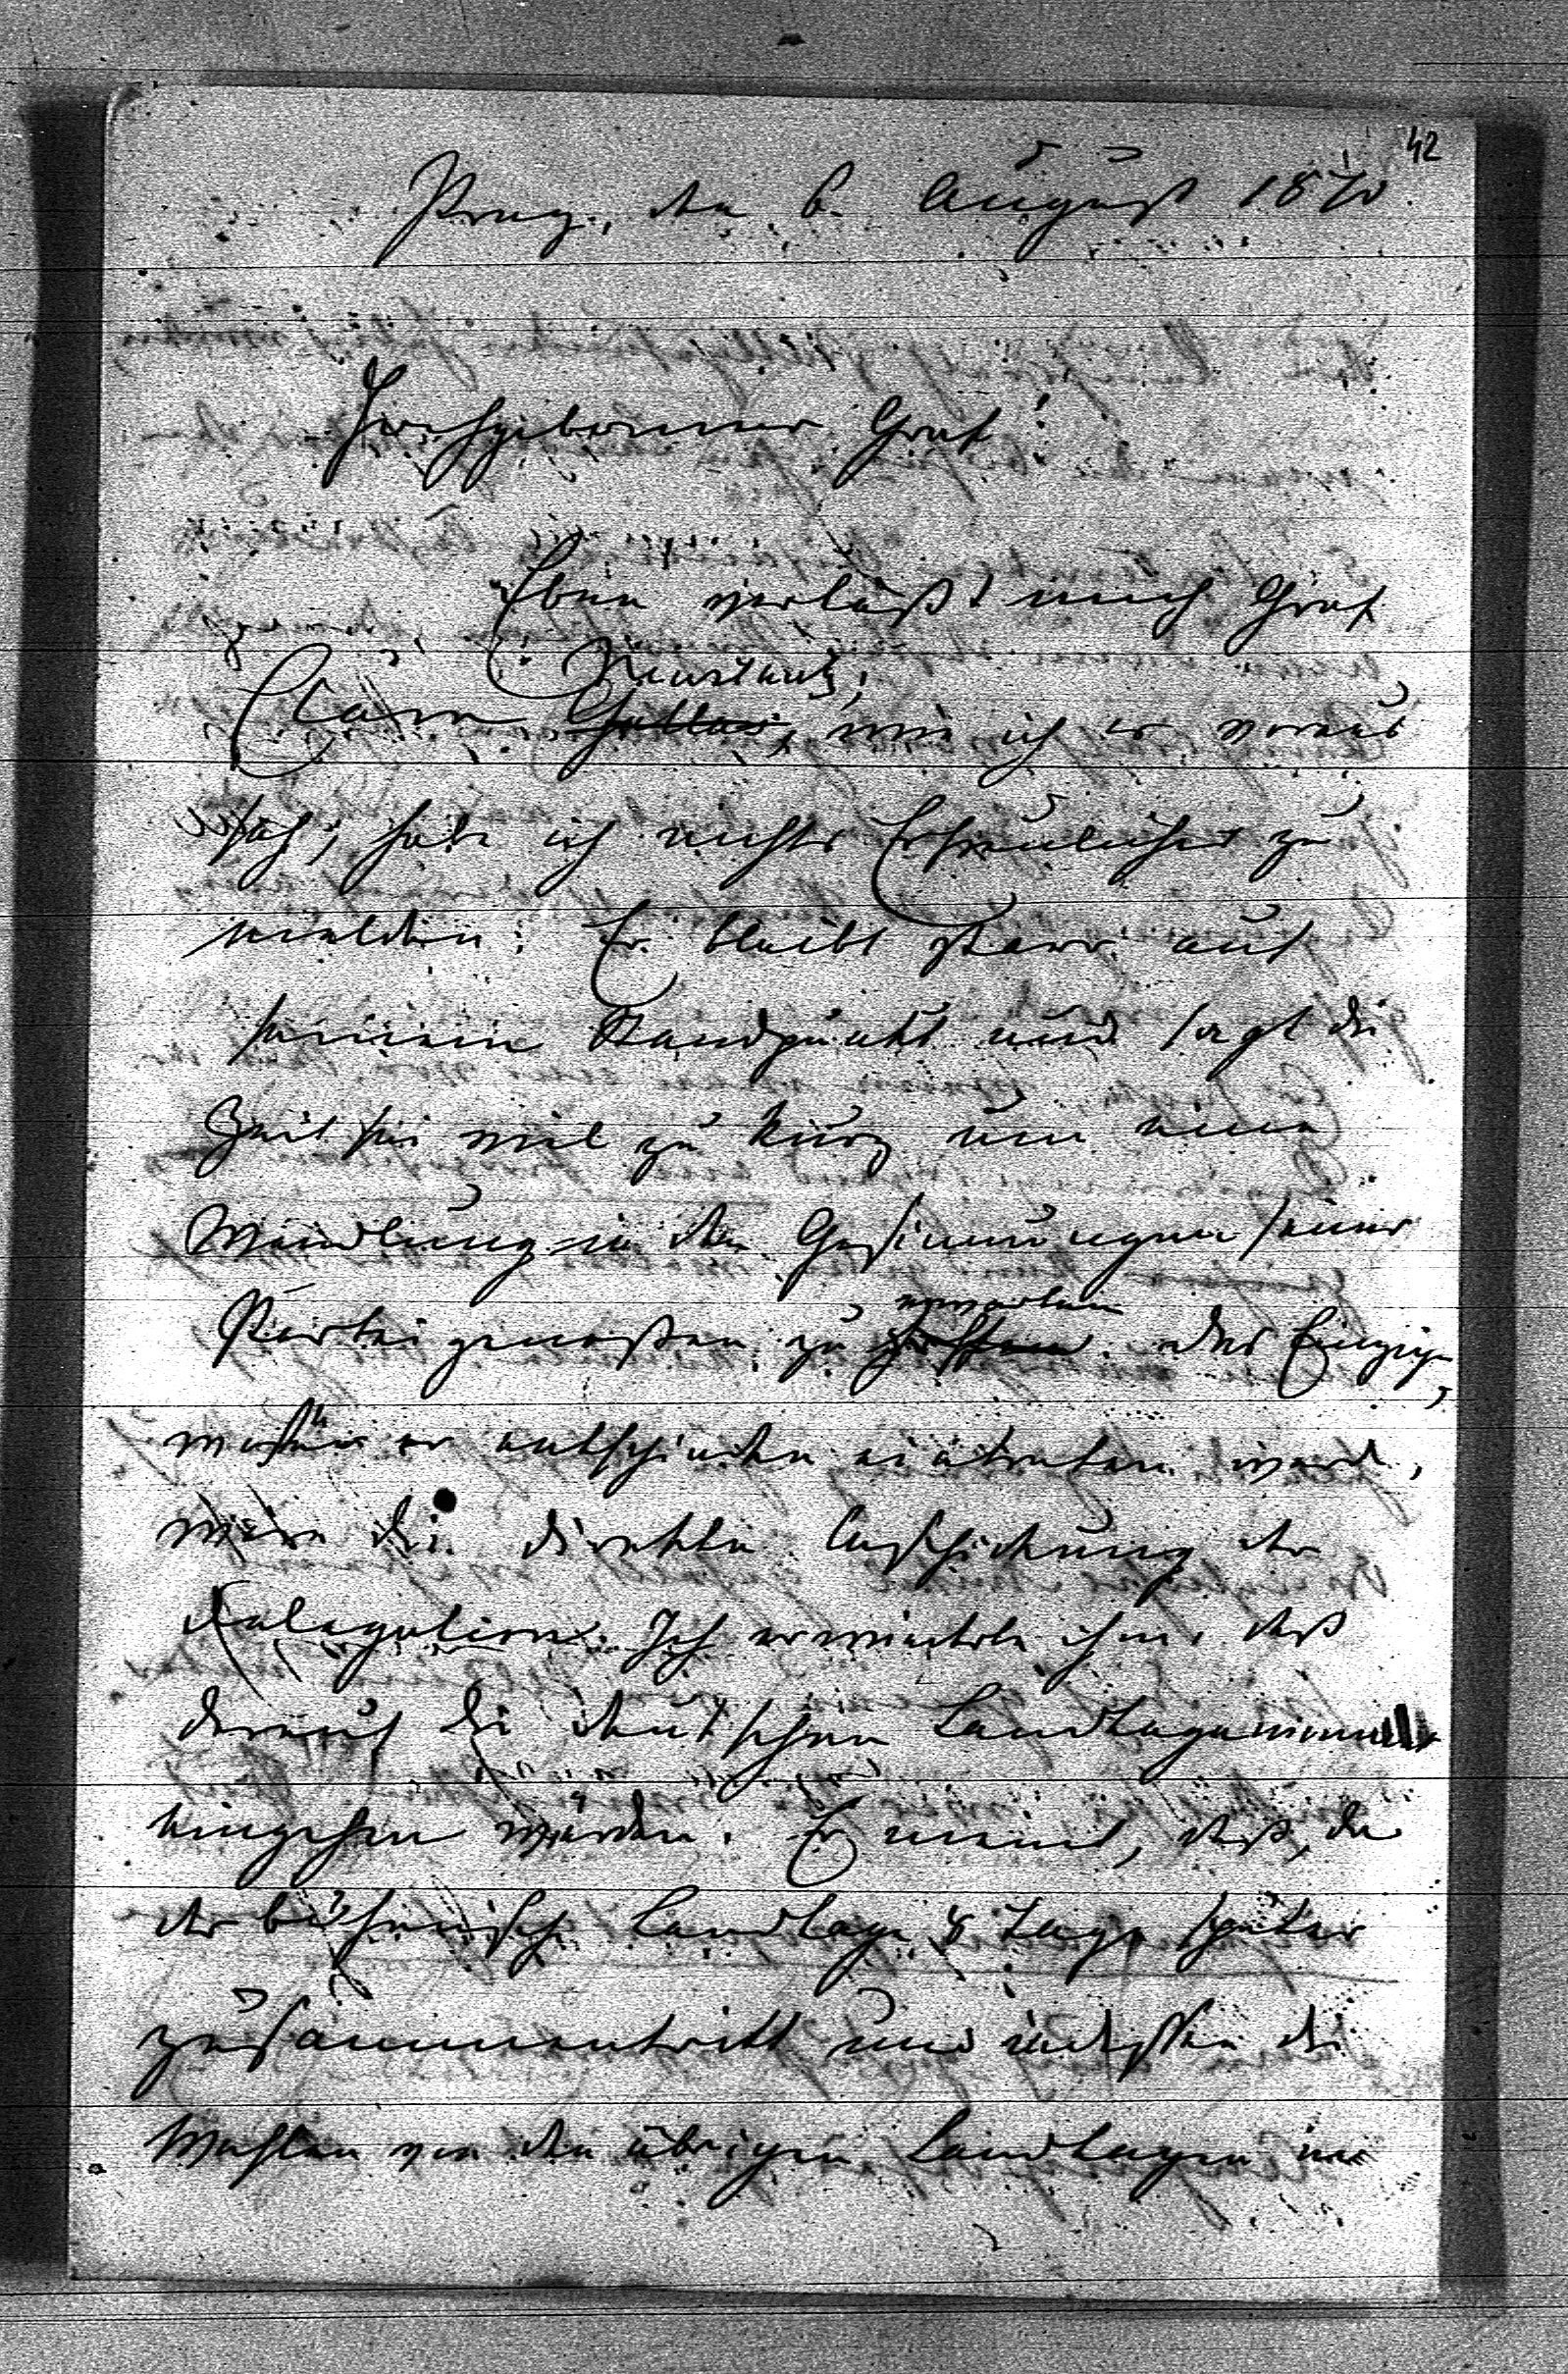 42
Prag, den 6. August 1870.
Hochgeborner Graf!
Eben verläßt mich Graf
Martinitz,
Clam Gallas, wie ich es voraus
sah, habe ich nichts Erfreuliches zu
melden. Er bleibt starr auf
seinem Standpunkt und sagt die
Zeit sei viel zu kurz um eine
Wandlung in den Gesinnungen seiner
erwarten
Parteigenoßen zu hoffen. Das Einzige,
wofür er entschieden eintreten werde,
wäre die direkte Beschickung der
Delegation. Ich erwiederte ihm, daß
darauf die deutschen Landtage nimmer
eingehen würden. Er meint, daß, da
der böhmische Landtag 8 Tage später
zusammentritt und indeßen die
Wahlen von den übrigen Landtagen